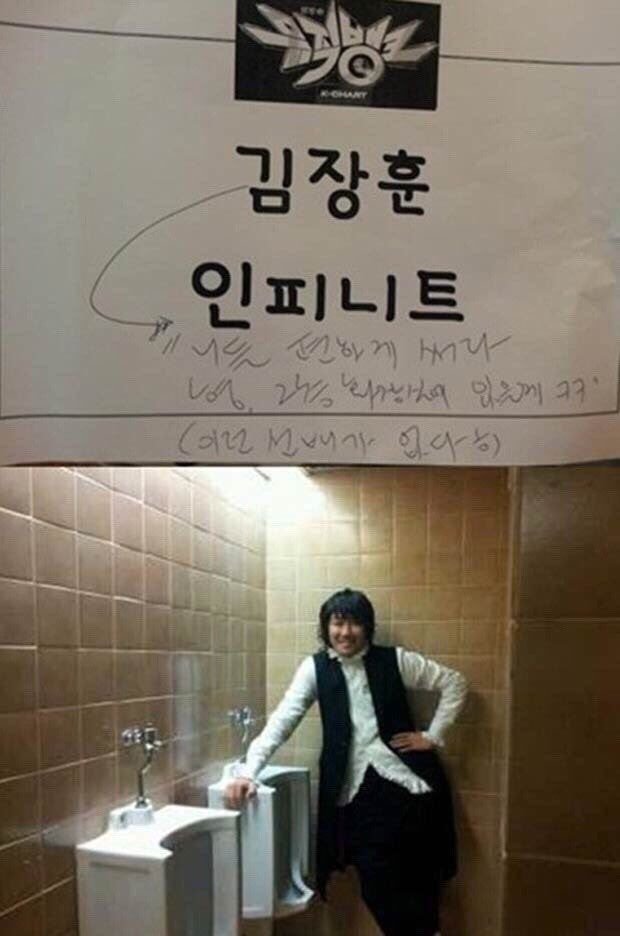 뮤직뱅크
K-CHART
김장훈
인피니트
니들 편하게 써라
형, 그냥 화장실에 있을께 ㅋㅋ
(이런 선배가 없다 ㅎ)